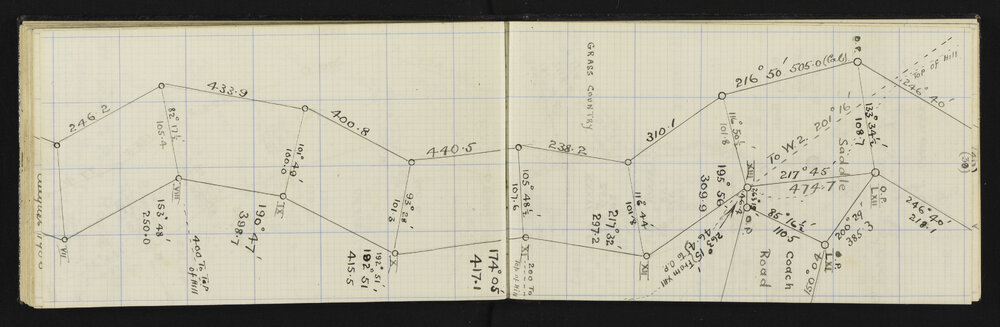 246.2
433.9
82° 17½'
105.4
VII
VIII
153° 48'
250.0
400 To Top
of Hill
400.8
101° 49'
100.0
IX
190° 47'
398.7
440.5
93° 28'
101.8
X
192° 51'
192° 51
415.5
GRASS COUNTRY
238.2
105° 48½'
107.6
XI
174° 05'
417.1
200 To
Top of Hill
310.1
116° 44'
101.8
217° 32'
297.2
XII
216° 50' 505.0 (Cal)
O.P.
Top of Hill
246° 40'
116° 50½'
101.8
To W2. 201° 16'
133° 34½'
108.7
Saddle
XIII
217° 45'
474.7
195° 56'
309.9
O.P.
263° 15'
From XIII
To O.P.
85° 16½'
110.5
Coach
Road
O.P.
LXII
246° 40'
218.1
200° 29'
385.3
O.P.
LXI